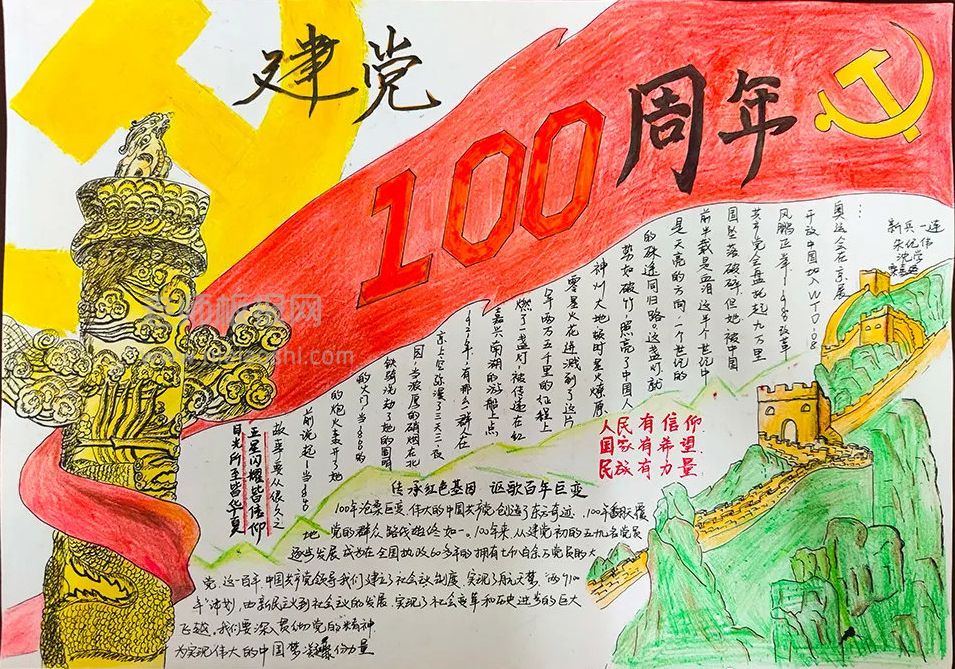 建党
100周年
奥运会在京展
开放中国加入WTO-08
风鹏正举-1978改革
共产党会盘托起九万里
国坠落破碎但她被中国
前半载是血泪这半个世纪中
是天亮的方向一个世纪的
的殊途同归路。这盏灯就
势如破竹照亮了中国人
神州大地顿时星火燎原
零星火花迸溅到了这片
年两万五千里的征程上
燃了盏灯,被传递在红
嘉兴南湖的游船上点
1921年,有那么一群人在
京上空弥漫了三天三夜
因,当滚厚的硝烟在北
的大门当1900
的炮火轰开了她
前说起-当1840
故事要从很久之
五星闪耀皆信仰
目光所至皆华夏
新兵一连
朱优伟
人民有信仰
国家有希望
民族有力量
传承红色基因 讴歌百年巨变
100年沧桑巨变,伟大的中国共产党创造了东方奇迹,100年翻天覆
地 党的群众路线始终如一。100年来,从建党初的五九名党员
逐步发展,成为在全国执政60多年的拥有七仟百余万党员的大
党,这一百年,中国共产党领导我们建立了社会主义制度,实现了航天梦,"两个100
年"计划,由新民主义到社会主义的发展,实现了社会变革和历史进步的巨大
飞越。我们要深入贯彻党的精神
为实现伟大的中国梦凝聚份力量